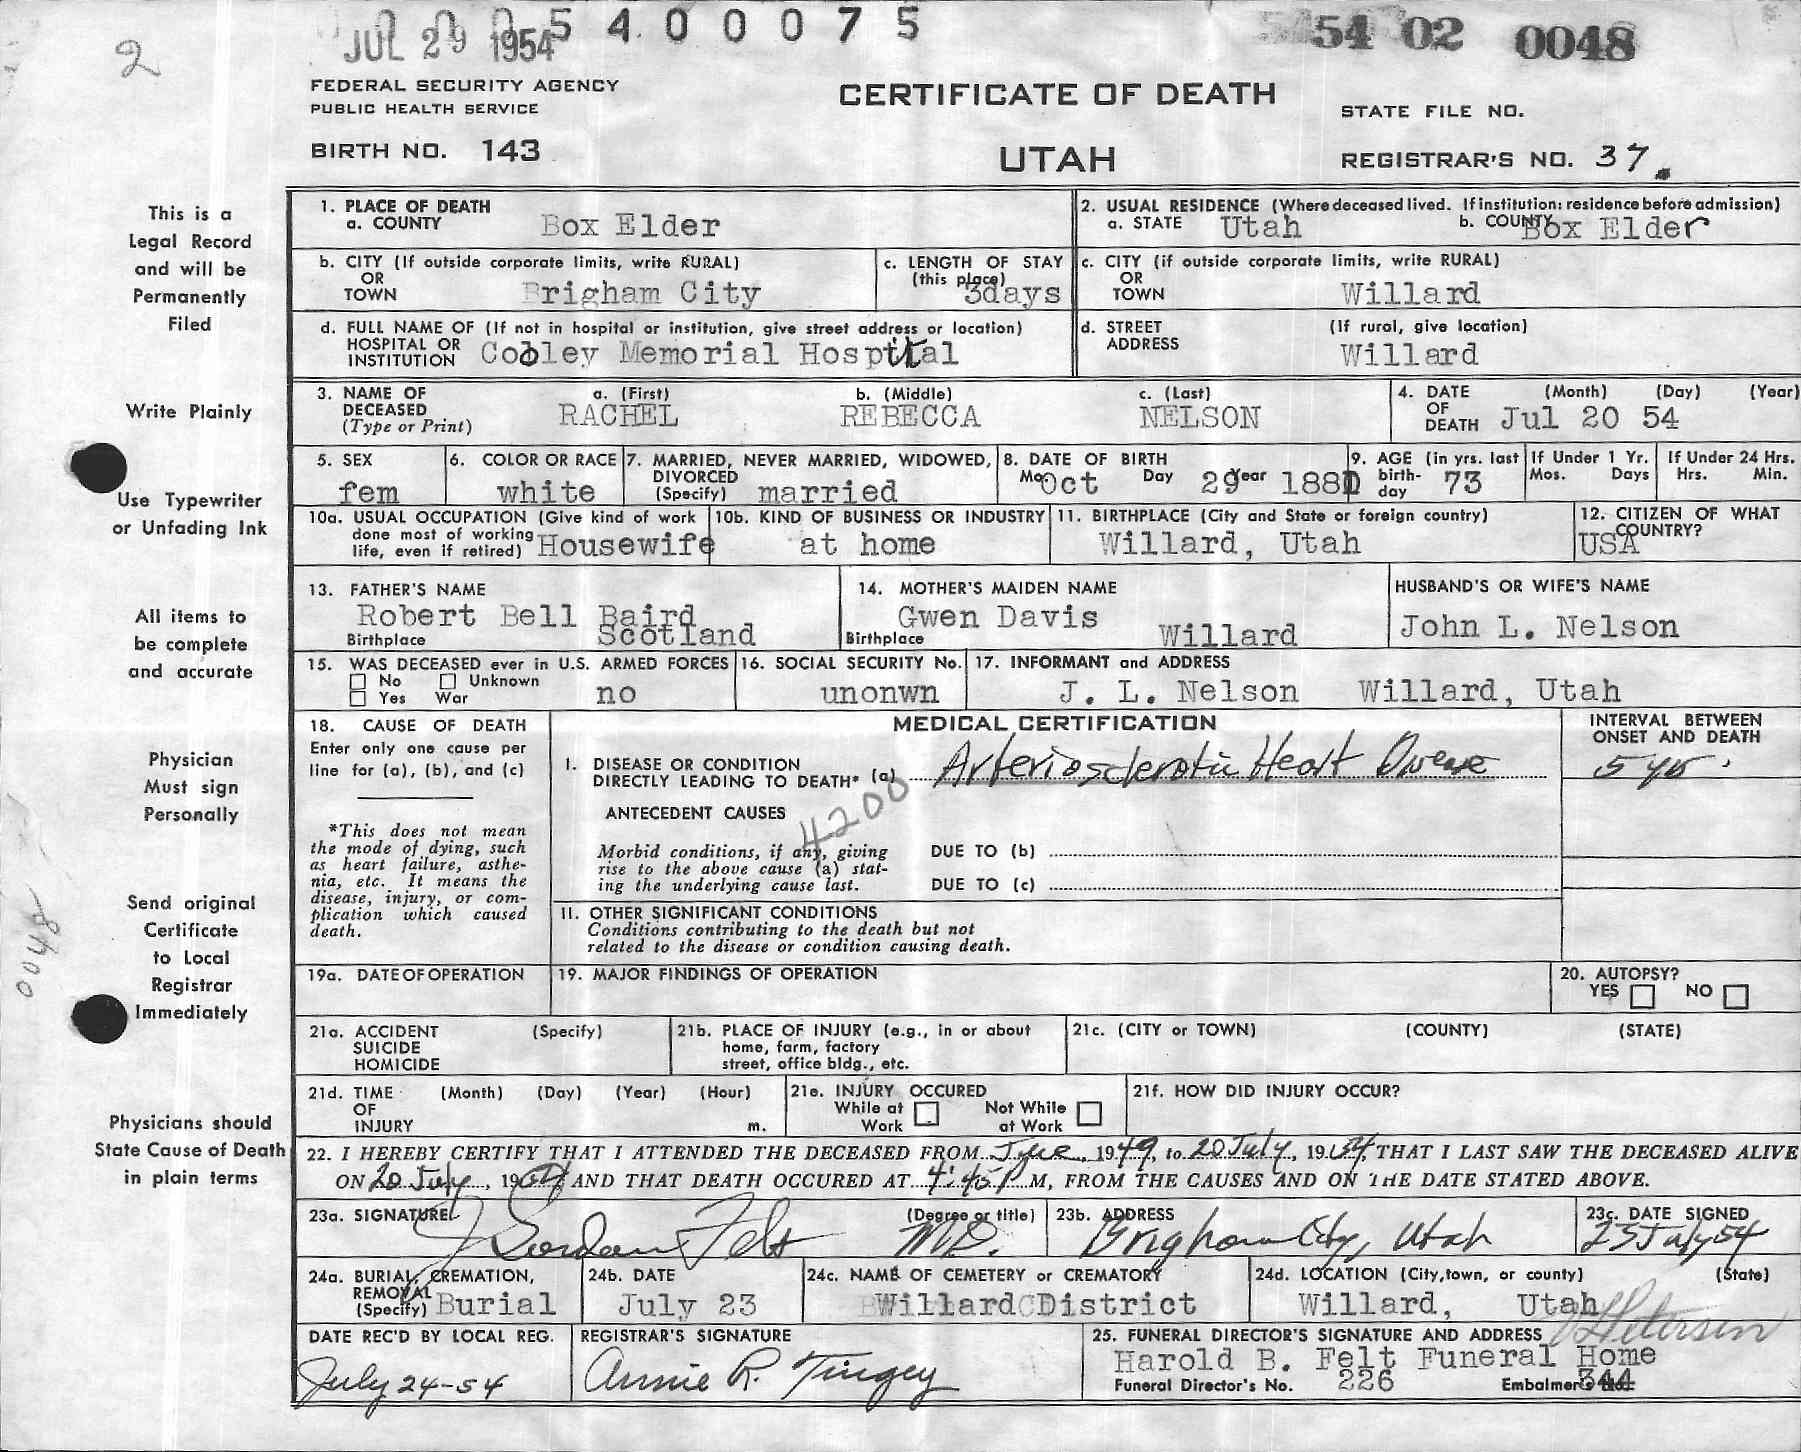 2
JUL 29 1954
5400075
54 02 0048
FEDERAL SECURITY AGENCY
PUBLIC HEALTH SERVICE
BIRTH NO. 143
CERTIFICATE OF DEATH
UTAH
STATE FILE NO.
REGISTRAR'S NO. 37.
This is a
Legal Record
and will be
Permanently
Filed
Write Plainly
Use Typewriter
or Unfading Ink
All items to
be complete
and accurate
Physician
Must sign
Personally
Send original
Certificate
to Local
Registrar
Immediately
0048
Physicians should
State Cause of Death
in plain terms
1. PLACE OF DEATH
a. COUNTY Box Elder
2. USUAL RESIDENCE (Where deceased lived. If institution: residence before admission)
a. STATE Utah b. COUNTY Box Elder
b. CITY (If outside corporate limits, write RURAL)
OR
TOWN Brigham City
c. LENGTH OF STAY
(this place)
3days
c. CITY (if outside corporate limits, write RURAL)
OR
TOWN Willard
d. FULL NAME OF (If not in hospital or institution, give street address or location)
HOSPITAL OR
INSTITUTION Cooley Memorial Hospital
d. STREET (If rural, give location)
ADDRESS Willard
3. NAME OF
DECEASED
(Type or Print)
a. (First) b. (Middle) c. (Last)
RACHEL REBECCA NELSON
4. DATE (Month) (Day) (Year)
OF
DEATH Jul 20 54
5. SEX
fem
6. COLOR OR RACE
white
7. MARRIED, NEVER MARRIED, WIDOWED,
DIVORCED
(Specify) married
8. DATE OF BIRTH
Mo. Oct Day 29 Year 1880
9. AGE (in yrs. last
birth-
day 73
If Under 1 Yr.
Mos. Days
If Under 24 Hrs.
Hrs. Min.
10a. USUAL OCCUPATION (Give kind of work
done most of working
life, even if retired) Housewife
10b. KIND OF BUSINESS OR INDUSTRY
at home
11. BIRTHPLACE (City and State or foreign country)
Willard, Utah
12. CITIZEN OF WHAT
COUNTRY?
USA
13. FATHER'S NAME
Robert Bell Baird
Birthplace Scotland
14. MOTHER'S MAIDEN NAME
Gwen Davis
Birthplace Willard
HUSBAND'S OR WIFE'S NAME
John L. Nelson
15. WAS DECEASED ever in U.S. ARMED FORCES
No Unknown
Yes War no
16. SOCIAL SECURITY No.
unonwn
17. INFORMANT and ADDRESS
J. L. Nelson Willard, Utah
18. CAUSE OF DEATH
Enter only one cause per
line for (a), (b), and (c)
*This does not mean
the mode of dying, such
as heart failure, asthe-
nia, etc. It means the
disease, injury, or com-
plication which caused
death.
MEDICAL CERTIFICATION
INTERVAL BETWEEN
ONSET AND DEATH
I. DISEASE OR CONDITION
DIRECTLY LEADING TO DEATH* (a) Arteriosclerotic Heart Disease
5 yrs.
4200
ANTECEDENT CAUSES
Morbid conditions, if any, giving
rise to the above cause (a) stat-
ing the underlying cause last.
DUE TO (b)
DUE TO (c)
II. OTHER SIGNIFICANT CONDITIONS
Conditions contributing to the death but not
related to the disease or condition causing death.
19a. DATE OF OPERATION
19. MAJOR FINDINGS OF OPERATION
20. AUTOPSY?
YES NO
21a. ACCIDENT (Specify)
SUICIDE
HOMICIDE
21b. PLACE OF INJURY (e.g., in or about
home, farm, factory
street, office bldg., etc.
21c. (CITY or TOWN) (COUNTY) (STATE)
21d. TIME (Month) (Day) (Year) (Hour)
OF
INJURY m.
21e. INJURY OCCURED
While at Work Not While at Work
21f. HOW DID INJURY OCCUR?
22. I HEREBY CERTIFY THAT I ATTENDED THE DECEASED FROM June, 1949, to 20 July, 1954, THAT I LAST SAW THE DECEASED ALIVE
ON 20 July, 1954 AND THAT DEATH OCCURED AT 4:45 P M, FROM THE CAUSES AND ON THE DATE STATED ABOVE.
23a. SIGNATURE (Degree or title)
J Gordon Felt M.D.
23b. ADDRESS
Brigham City, Utah
23c. DATE SIGNED
23 July 54
24a. BURIAL, CREMATION,
REMOVAL
(Specify) Burial
24b. DATE
July 23
24c. NAME OF CEMETERY or CREMATORY
Willard District
24d. LOCATION (City, town, or county) (State)
Willard, Utah
DATE REC'D BY LOCAL REG.
July 24-54
REGISTRAR'S SIGNATURE
Annie R. Tingey
25. FUNERAL DIRECTOR'S SIGNATURE AND ADDRESS
Petersen
Harold B. Felt Funeral Home
Funeral Director's No. 226 Embalmer's No. 344